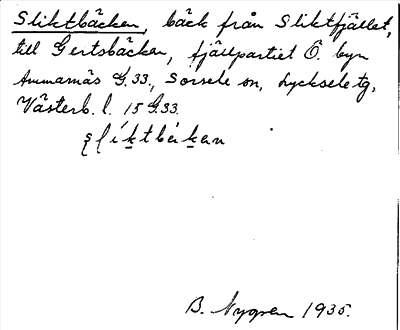 Sliktbäcken, bäck från Sliktfjället,
till Gertsbäcken, fjällpartiet Ö. byn
Ammarnäs G.33., Sorsele sn, Lycksele tg,
Västerb. l. 15 G.33.
B. Nygren 1935.